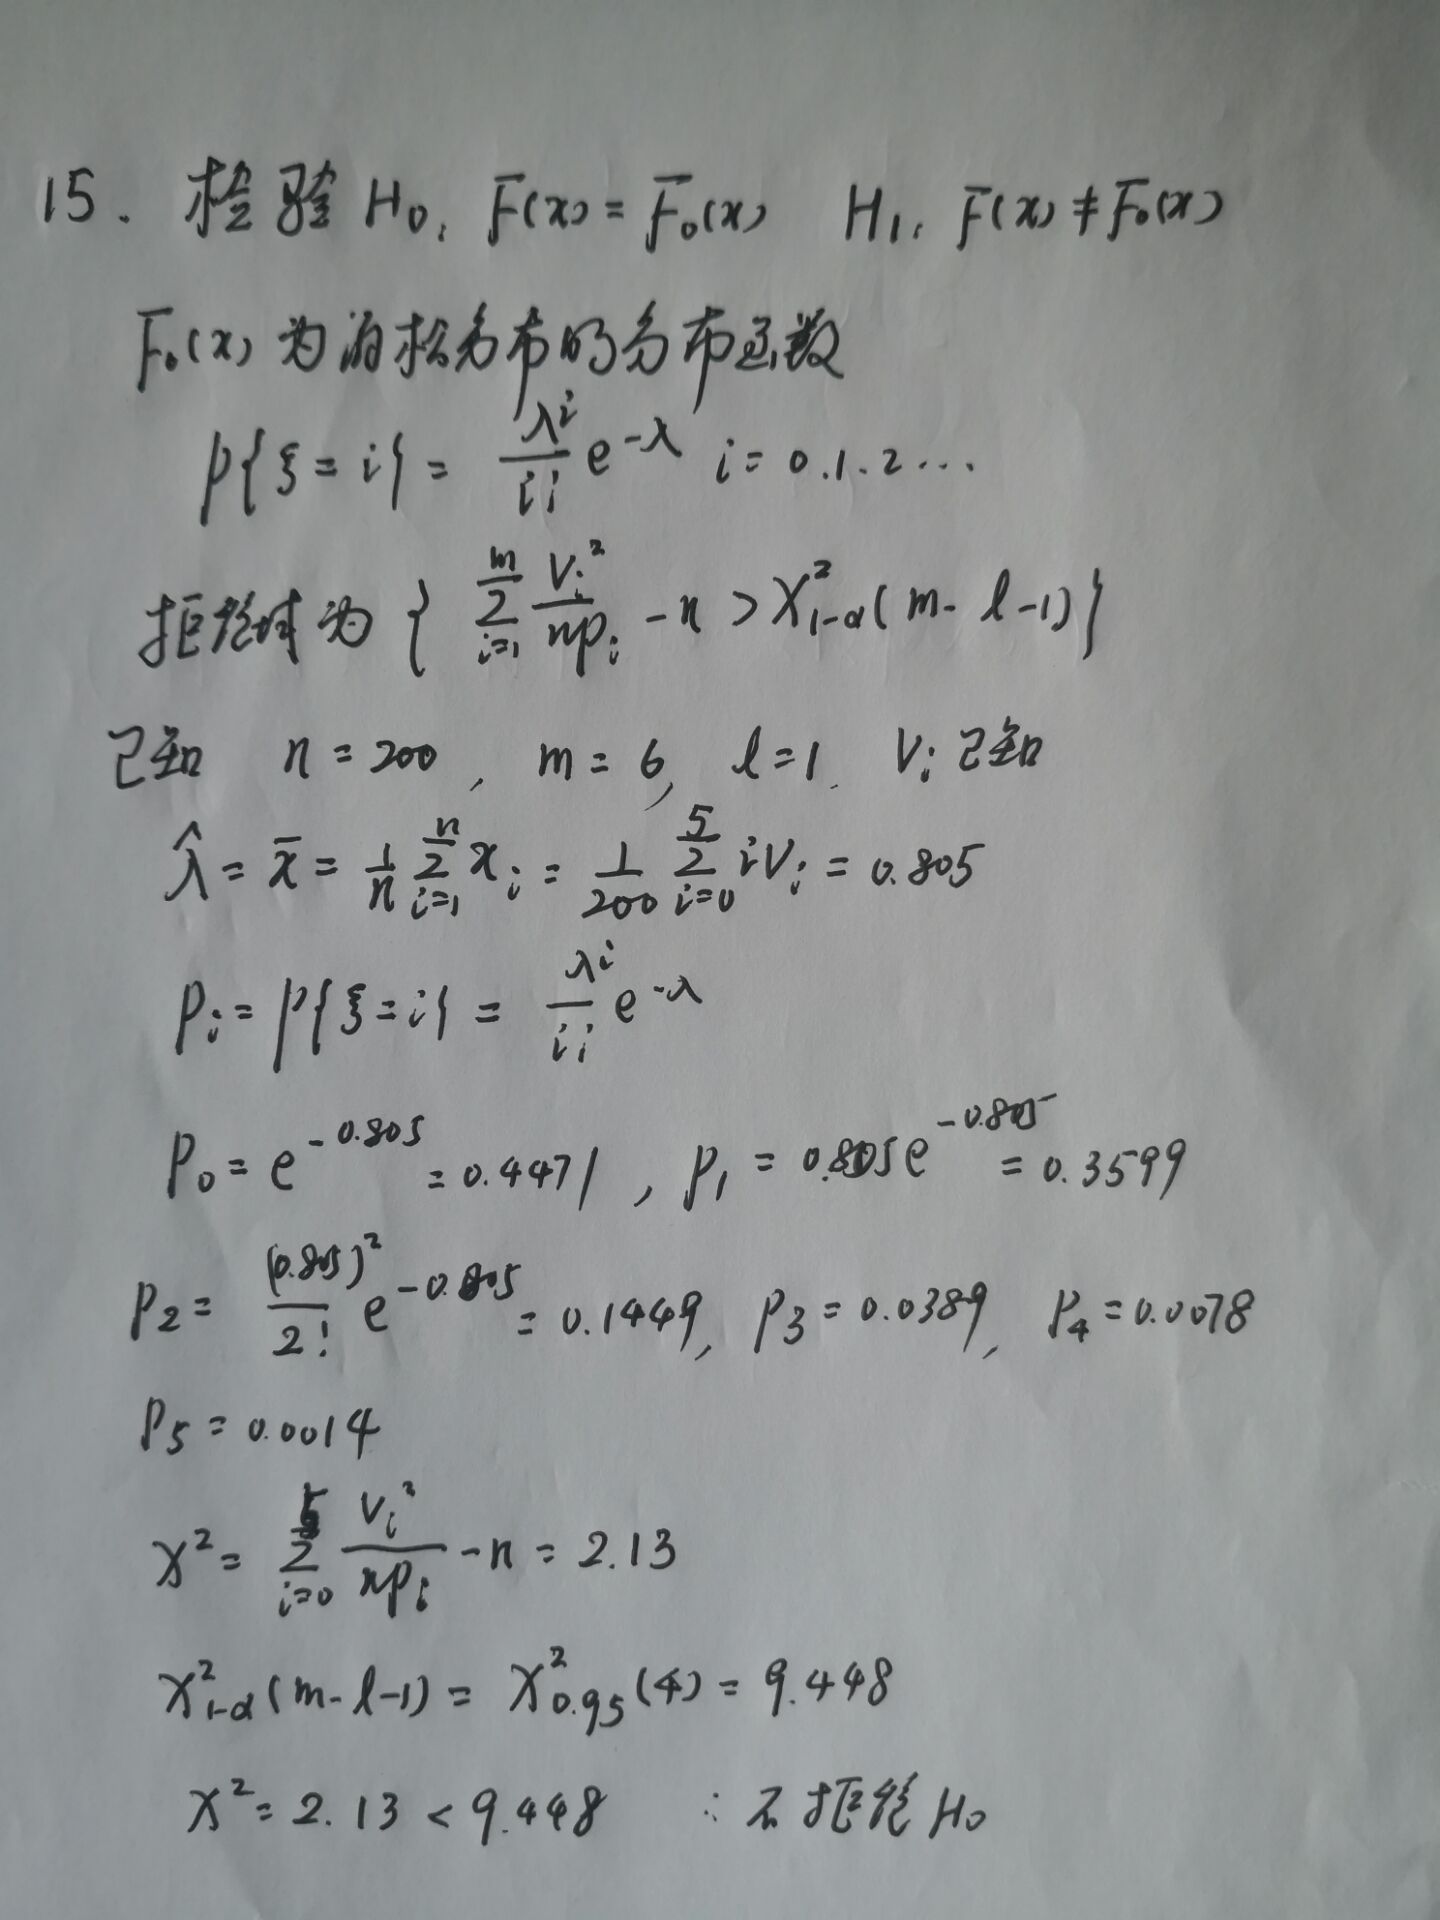 15. 检验 H₀: F(x) = F₀(x) H₁: F(x) ≠ F₀(x)
F₀(x) 为泊松分布的分布函数
P{ξ=i} = \frac{λ^i}{i!} e^{-λ} i = 0.1.2...
拒绝域为 { \sum_{i=1}^{m} \frac{V_i^2}{np_i} - n > χ²_{1-α}(m-l-1) }
已知 n = 200, m = 6, l = 1. V_i 已知
\hat{λ} = \bar{x} = \frac{1}{n} \sum_{i=1}^{n} x_i = \frac{1}{200} \sum_{i=0}^{5} iV_i = 0.805
P_i = P{ξ=i} = \frac{λ^i}{i!} e^{-λ}
P₀ = e^{-0.805} = 0.4471, P₁ = 0.805e^{-0.805} = 0.3599
P₂ = \frac{(0.805)^2}{2!} e^{-0.805} = 0.1449, P₃ = 0.0389, P₄ = 0.0078
P₅ = 0.0014
χ² = \sum_{i=0}^{5} \frac{V_i^2}{np_i} - n = 2.13
χ²_{1-α}(m-l-1) = χ²_{0.95}(4) = 9.448
χ² = 2.13 < 9.448 ∴ 不拒绝 H₀